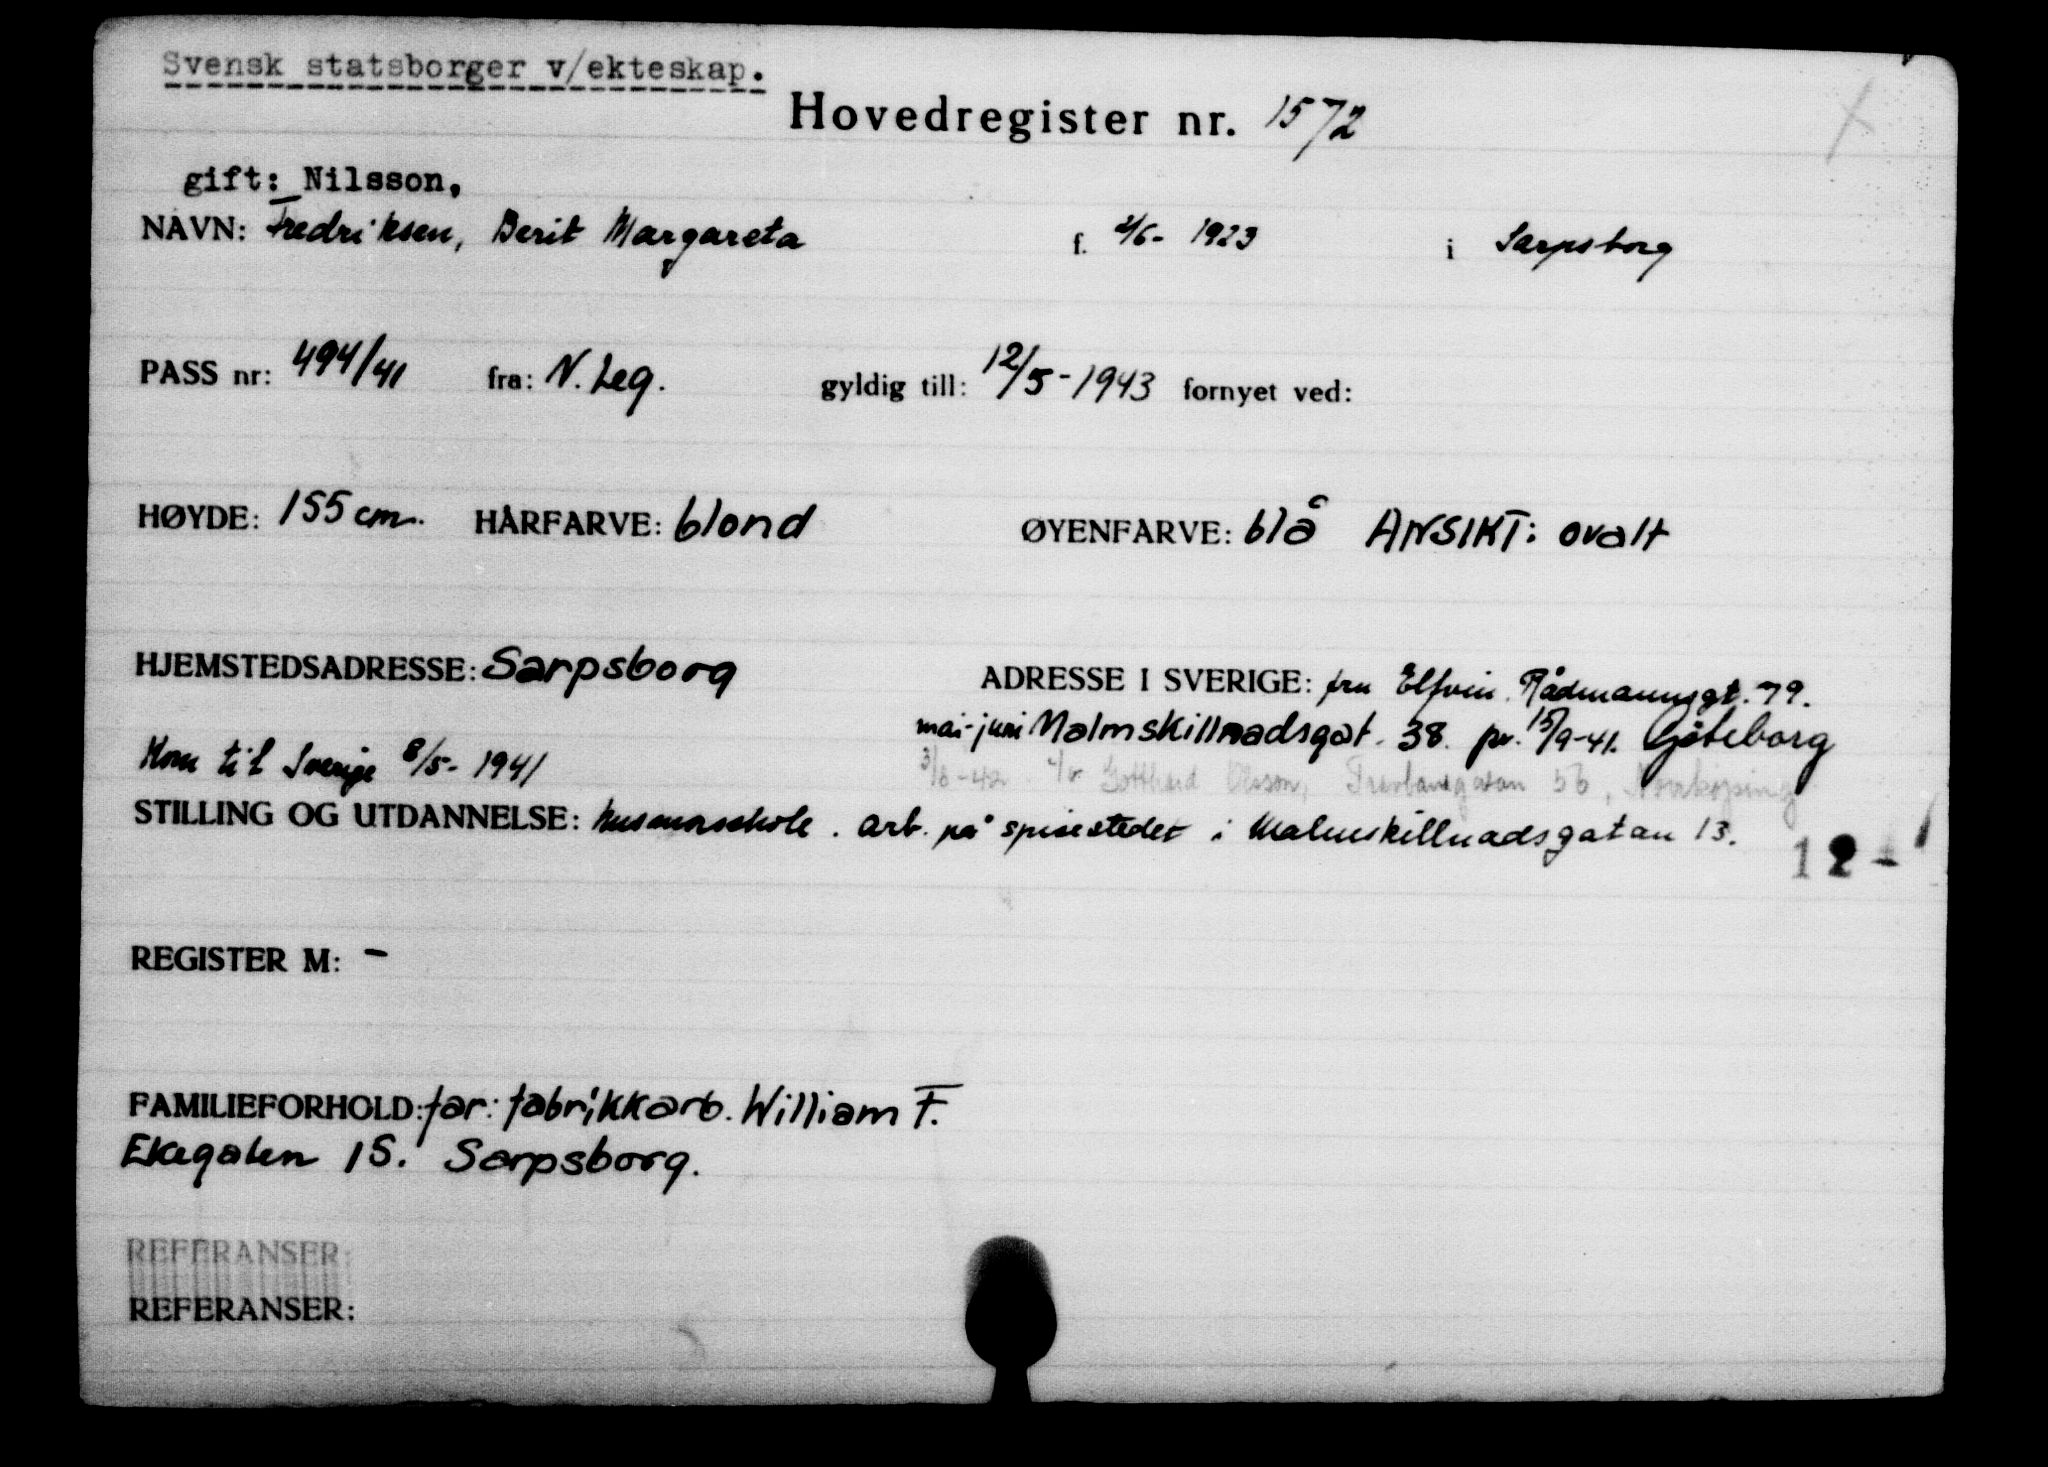 Svensk statsborger v/ekteskap.
Hovedregister nr. 1572
gift: Nilsson,
NAVN: Fredriksen, Berit Margareta f. 2/6- 1923 i Sarpsborg
PASS nr: 494/41 fra: N. Leg. gyldig till: 12/5-1943 fornyet ved:
HØYDE: 155 cm. HÅRFARVE: blond ØYENFARVE: blå ANSIKT: ovalt
HJEMSTEDSADRESSE: Sarpsborg ADRESSE I SVERIGE: fru Elfvin. Rådmannsgt. 79.
mai-juni Malmskillnadsgat. 38. pr. 15/9-41. Göteborg
Kom til Sverige 8/5- 1941
3/8-42 Gotthard Olsson, 56, Norrköping
STILLING OG UTDANNELSE: Husmorskole. arb. på spisestedet i Malmskillnadsgatan 13.
12-
REGISTER M: -
FAMILIEFORHOLD: far: fabrikkarb. William F.
Ekegaten 15. Sarpsborg.
REFERANSER:
REFERANSER: